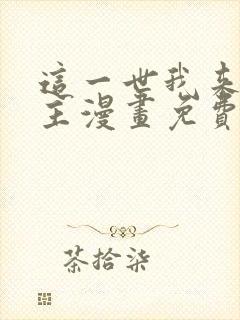 這一世我來
主漫畫免費
茶拾柒